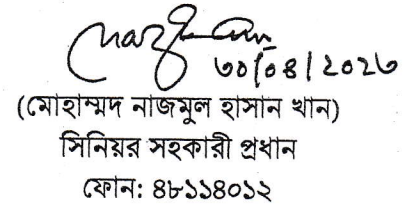 ৩০/০৪/২০২৩
(মোহাম্মদ নাজমুল হাসান খান)
সিনিয়র সহকারী প্রধান
ফোন: ৪৮১১৪০১২